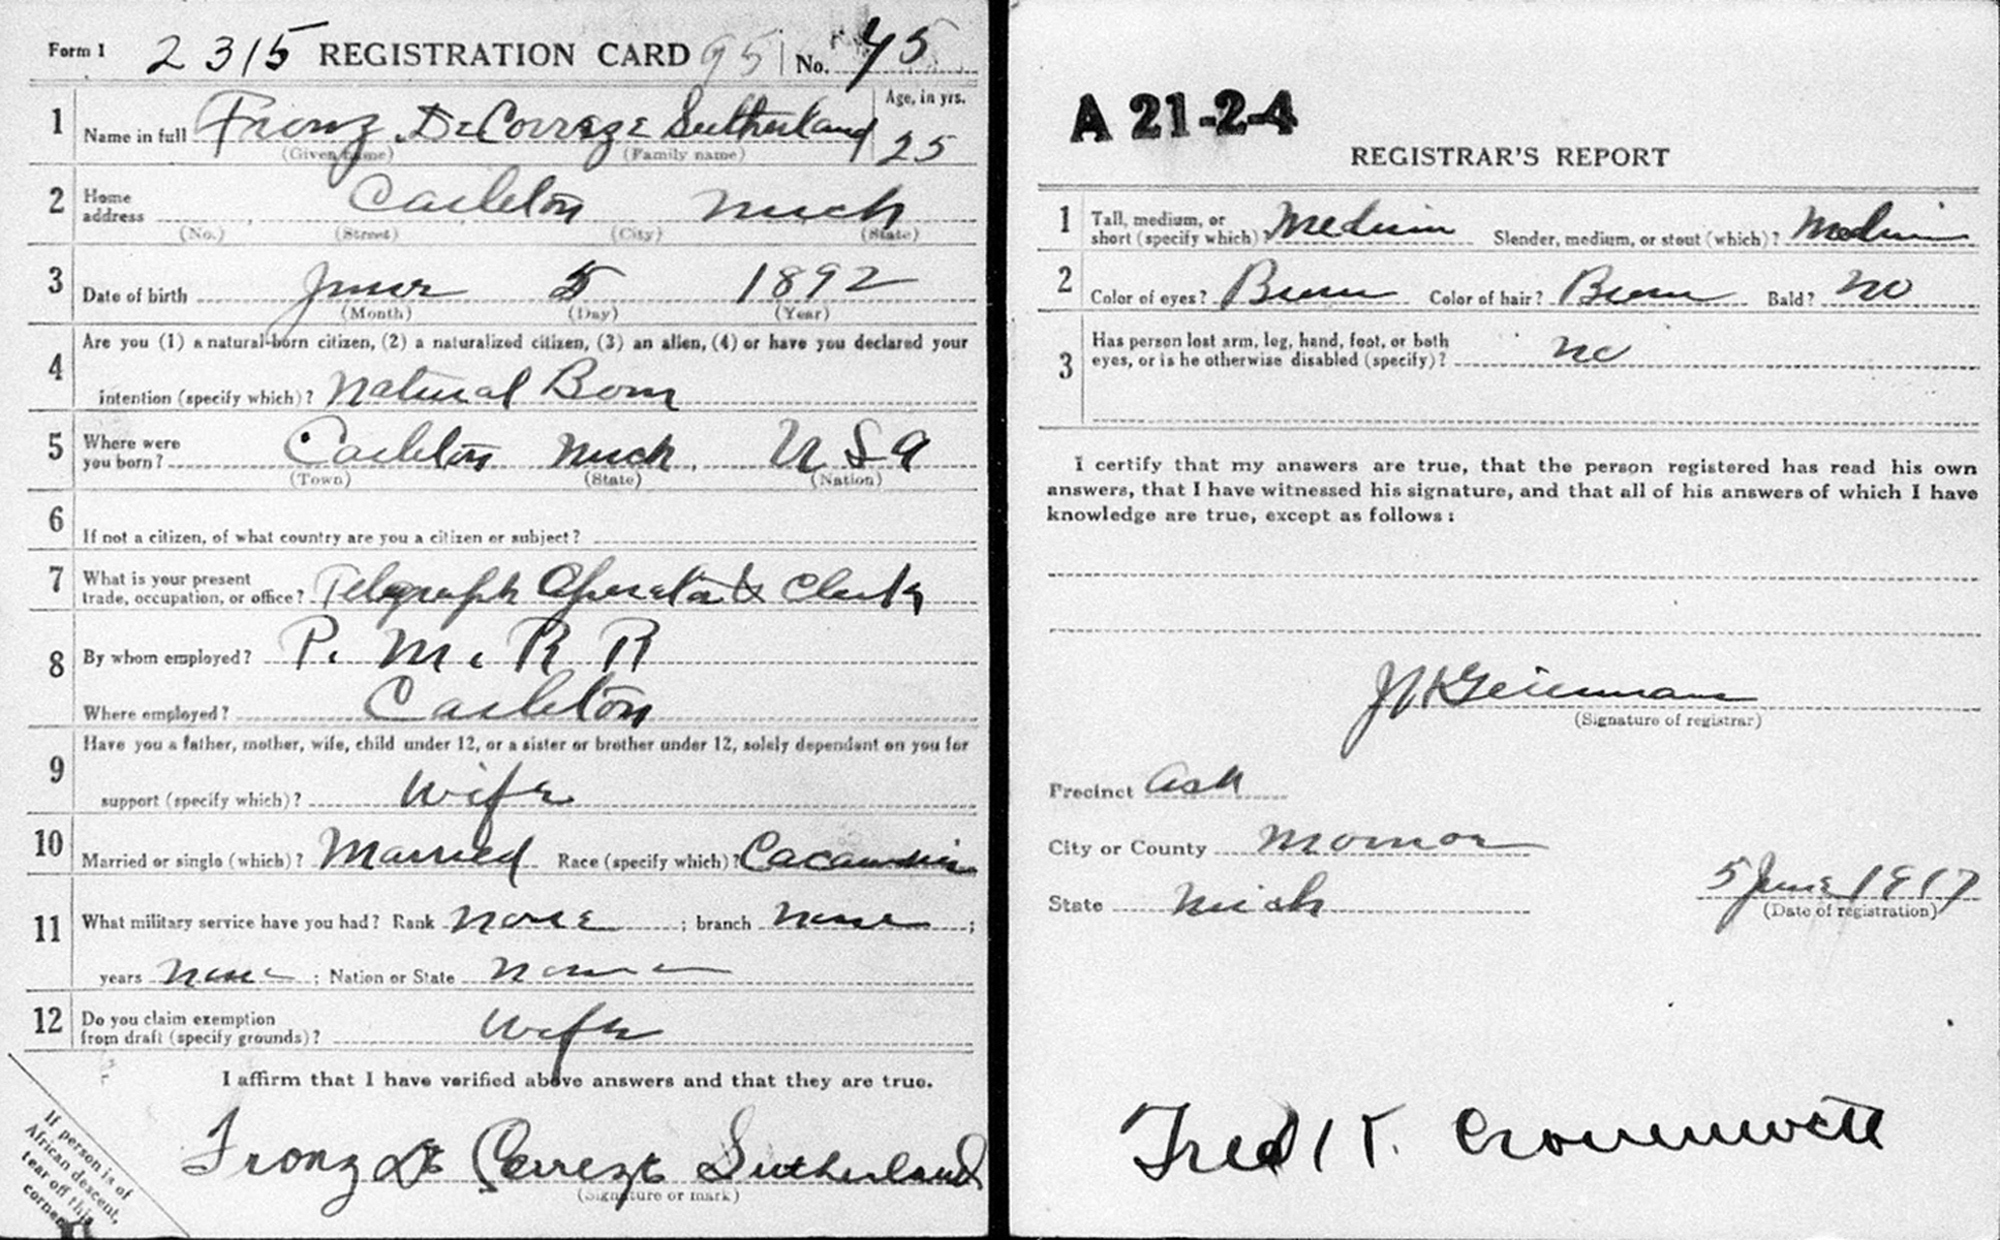 Form 1 2315 REGISTRATION CARD 95 No. 45
1 Name in full Fronz De Correze Sutherland Age, in yrs. 25
(Given name) (Family name)
2 Home address Carleton Mich
(No.) (Street) (City) (State)
3 Date of birth June 5 1892
(Month) (Day) (Year)
4 Are you (1) a natural-born citizen, (2) a naturalized citizen, (3) an alien, (4) or have you declared your
intention (specify which)? Natural Born
5 Where were you born? Carleton Mich. U S A
(Town) (State) (Nation)
6 If not a citizen, of what country are you a citizen or subject?
7 What is your present trade, occupation, or office? Telegraph Operator & Clerk
8 By whom employed? P. M. R R
Where employed? Carleton
9 Have you a father, mother, wife, child under 12, or a sister or brother under 12, solely dependent on you for
support (specify which)? Wife
10 Married or single (which)? Married Race (specify which)?
11 What military service have you had? Rank None ; branch None ;
years None ; Nation or State None
12 Do you claim exemption from draft (specify grounds)? Wife
I affirm that I have verified above answers and that they are true.
Fronz De Correze Sutherland
(Signature or mark)
If person is of
African descent,
tear off this
corner
A 21-2-4
REGISTRAR'S REPORT
1 Tall, medium, or short (specify which)? Medium Slender, medium, or stout (which)? Medium
2 Color of eyes? Brown Color of hair? Brown Bald? No
3 Has person lost arm, leg, hand, foot, or both
eyes, or is he otherwise disabled (specify)? No
I certify that my answers are true, that the person registered has read his own
answers, that I have witnessed his signature, and that all of his answers of which I have
knowledge are true, except as follows:
(Signature of registrar)
Precinct Ash
City or County Monroe
State Mich
5 June 1917
(Date of registration)
Fred K. Cronenwett